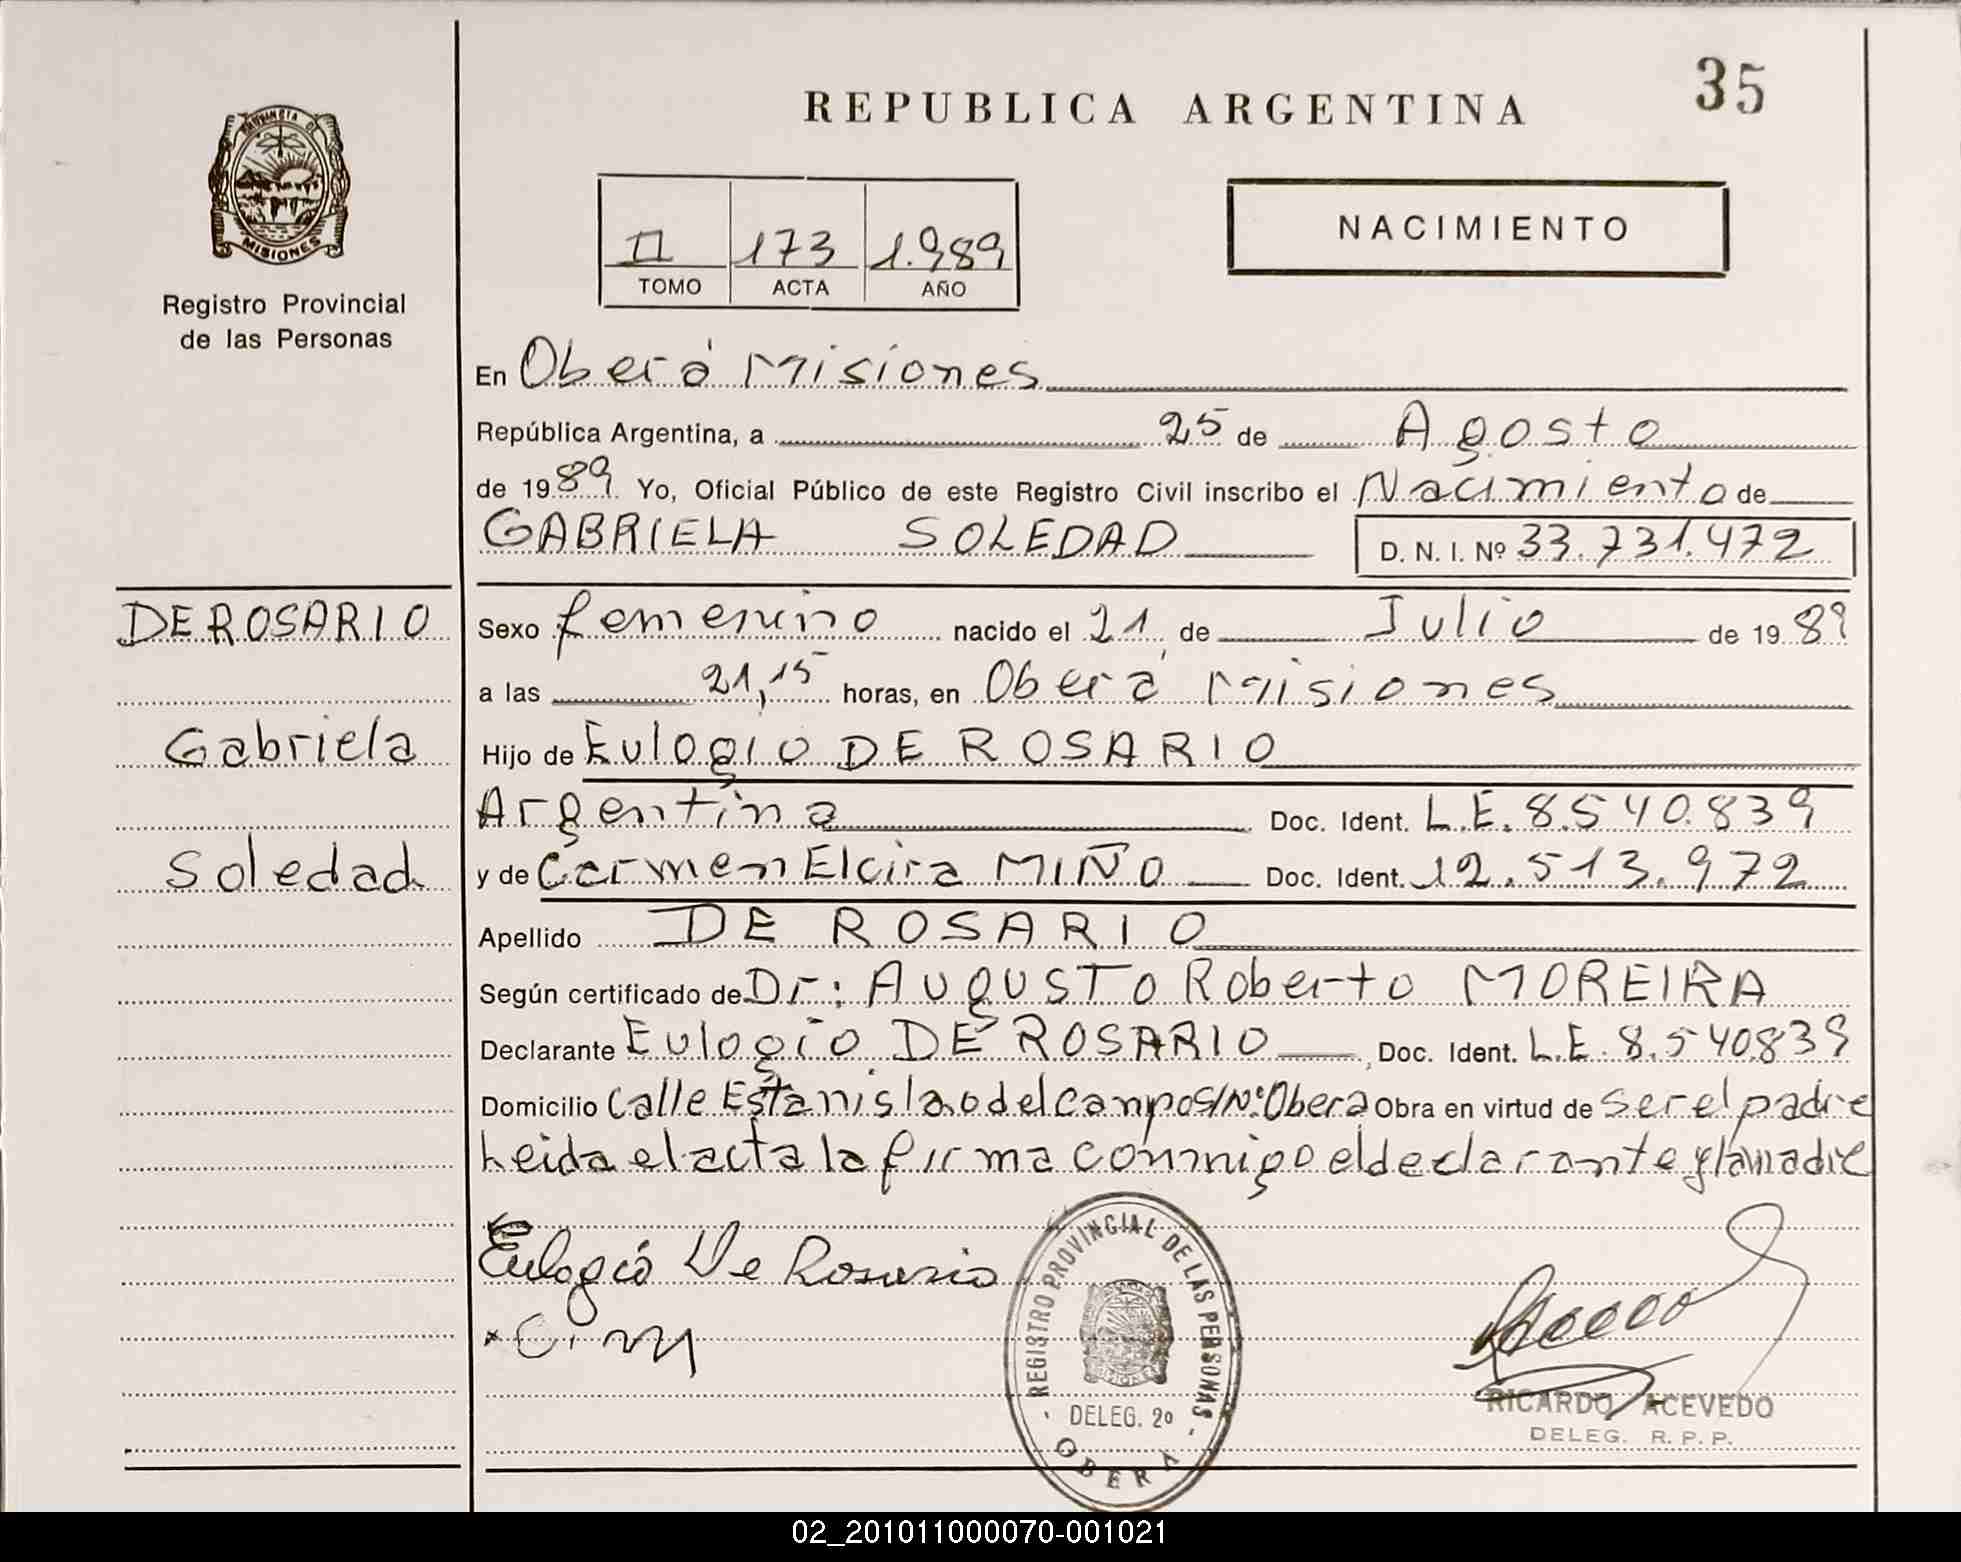 35
REPUBLICA ARGENTINA
PROVINCIA D
MISIONES
Registro Provincial
de las Personas
II 173 1.989
TOMO ACTA AÑO
NACIMIENTO
En Oberá Misiones
República Argentina, a 25 de Agosto
de 1989 Yo, Oficial Público de este Registro Civil inscribo el Nacimiento de
GABRIELA SOLEDAD D. N. I. Nº 33.731.472
DE ROSARIO
Gabriela
Soledad
Sexo femenino nacido el 21 de Julio de 1989
a las 21,15 horas, en Oberá Misiones
Hijo de Eulogio DE ROSARIO
Argentina Doc. Ident. L.E. 8.540.839
y de Carmen Elcira MIÑO Doc. Ident. 12.513.972
Apellido DE ROSARIO
Según certificado de Dr: AUGUSTO Roberto MOREIRA
Declarante Eulogio DE ROSARIO, Doc. Ident. L.E. 8.540.839
Domicilio calle Estanislao del campo S/Nº Obera Obra en virtud de ser el padre
Leida el acta la firma conmigo el declarante y la madre
Eulogió De Rosario
C. M
REGISTRO PROVINCIAL DE LAS PERSONAS
DELEG. 2º
OBERA
RICARDO ACEVEDO
DELEG. R. P. P.
02_201011000070-001021